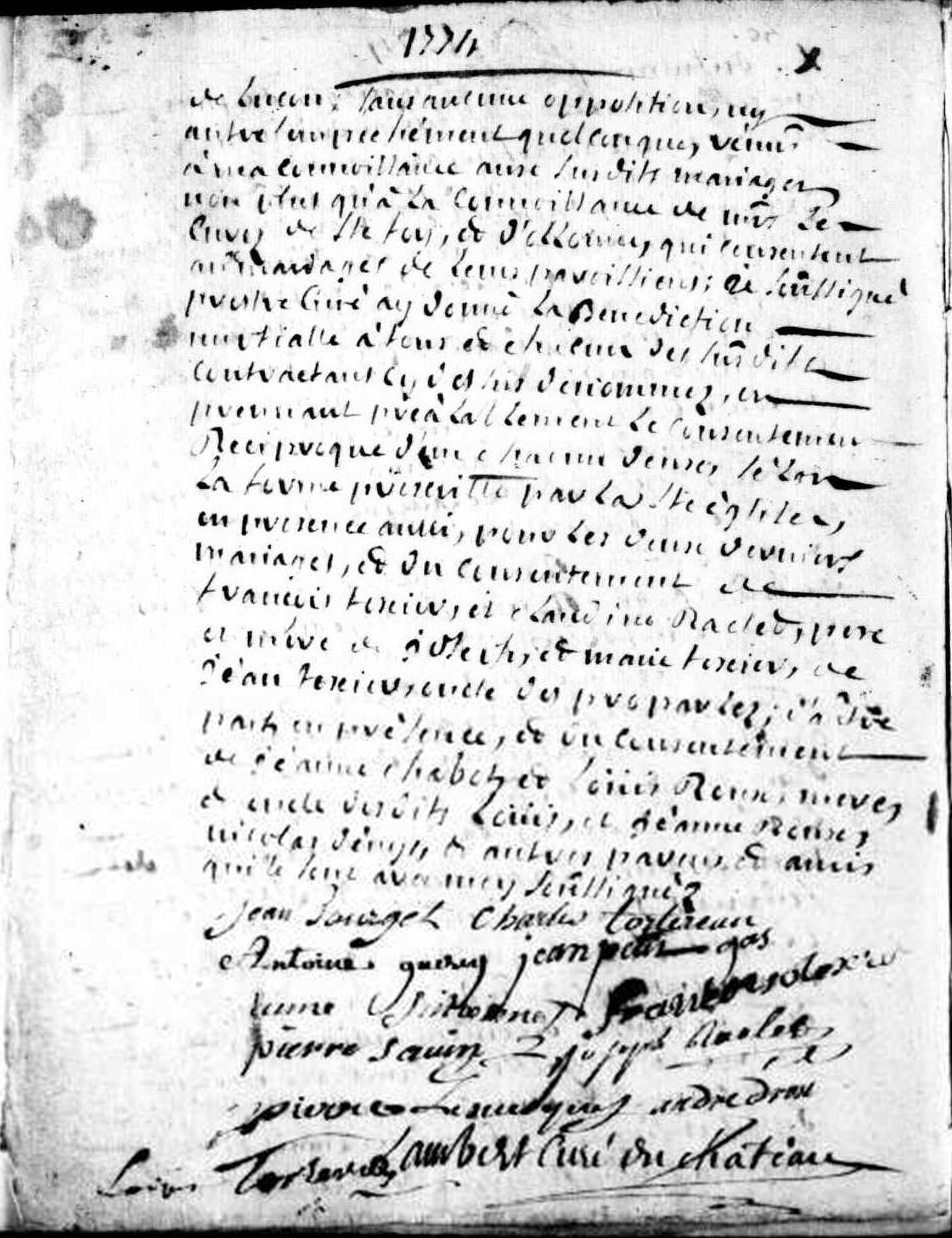 1774
de Luçon, sans aucune opposition, ny
autre empechement quelconque, venus
à ma connoissance auxe susdits mariages
non plus qu'à la connoissance de mrs Les
Curez de Ste foy, et d'ollonne, qui consentent
aux mariages de leurs paroissiens; Je soussigné
prestre Curé ay donné La Benediction
nuptialle à tous et chacun des susdits
contractant cy dessus dénommez, en
prennant préalablement le consentement
Reciproque d'un chacun d'eux selon
La forme prescritte par La Ste église,
en presence aussi, pour les deux derniers
mariages, et du consentement de
françois texier, et Claudine Raclet, pere
et mère de joseph, et marie texier, de
jéan texier, oncle des proparlez; d'autre
part, en présence, et du consentement
de jéanne Chabot, et Loüis Roux, mere,
et oncle desdits Loüis, et jéanne Roux,
nicolas dénys, et autres parens, et amis
qui se sont avec moy soussignéz
jean Charles
Antoine jean petit gas
françois texier
pierre savin joseph Raclet
pierre andre drou
Louis Lambert Curé du chateau